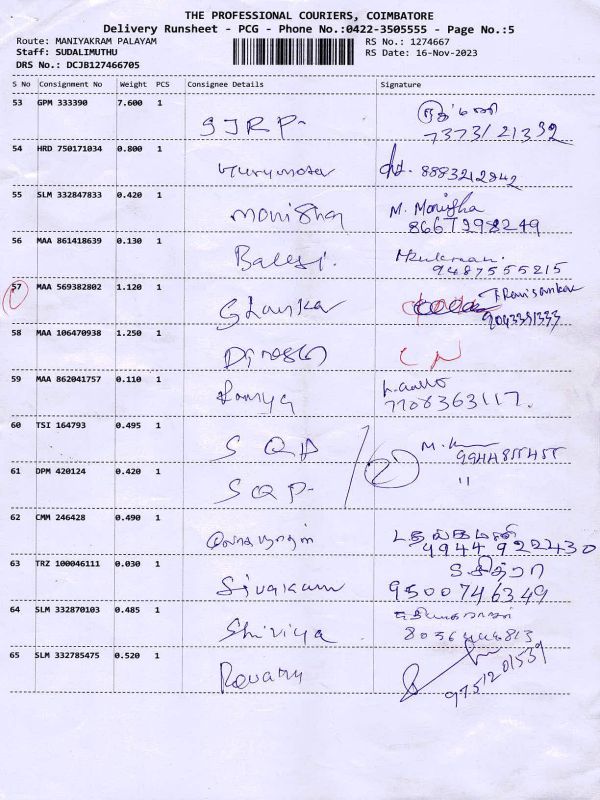 THE PROFESSIONAL COURIERS, COIMBATORE
Delivery Runsheet - PCG - Phone No.:0422-3505555 - Page No.:5
Route: MANIYAKRAM PALAYAM RS No.: 1274667
Staff: SUDALIMUTHU RS Date: 16-Nov-2023
DRS No.: DCJB127466705
S No Consignment No Weight PCS Consignee Details Signature
53 GPM 333390 7.600 1
SJRP-
7373121332
54 HRD 750171034 0.800 1
8883212842
55 SLM 332847833 0.420 1
monisha M. Monisha
8667298249
56 MAA 861418639 0.130 1
Balaji.
9487555215
57 MAA 569382802 1.120 1
T. Ravisankar
9043391333
58 MAA 106470938 1.250 1
59 MAA 862041757 0.110 1
Ramya
7708363117.
60 TSI 164793 0.495 1
SQP
9944855455
61 DPM 420124 0.420 1
2
SQP- "
62 CMM 246428 0.490 1
9944922430
63 TRZ 100046111 0.030 1
சித்ரா
Sivakam 9500746349
64 SLM 332870103 0.485 1
Shiviya
8056444813
65 SLM 332785475 0.520 1
Revathy
9751201539